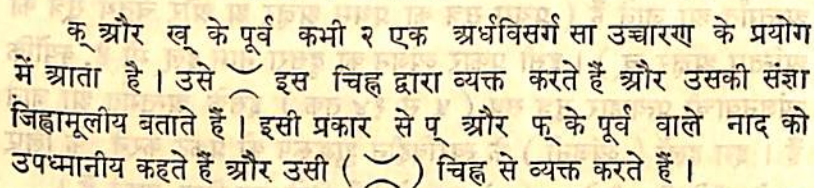 क् और ख् के पूर्व कभी २ एक अर्धविसर्ग सा उच्चारण के प्रयोग
में आता है । उसे ≍ इस चिह्न द्वारा व्यक्त करते हैं और उसकी संज्ञा
जिह्वामूलीय बताते हैं । इसी प्रकार से प् और फ् के पूर्व वाले नाद को
उपध्मानीय कहते हैं और उसी ( ≍ ) चिह्न से व्यक्त करते हैं ।